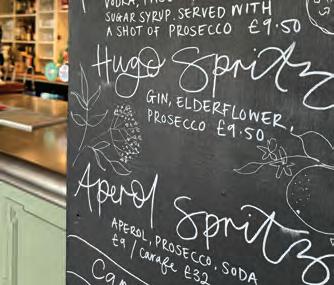 SUGAR SYRUP. SERVED WITH
A SHOT OF PROSECCO £9.50
Hugo Spritz
GIN, ELDERFLOWER,
PROSECCO £9.50
Aperol Spritz
APEROL, PROSECCO, SODA
£9 / Carafe £32